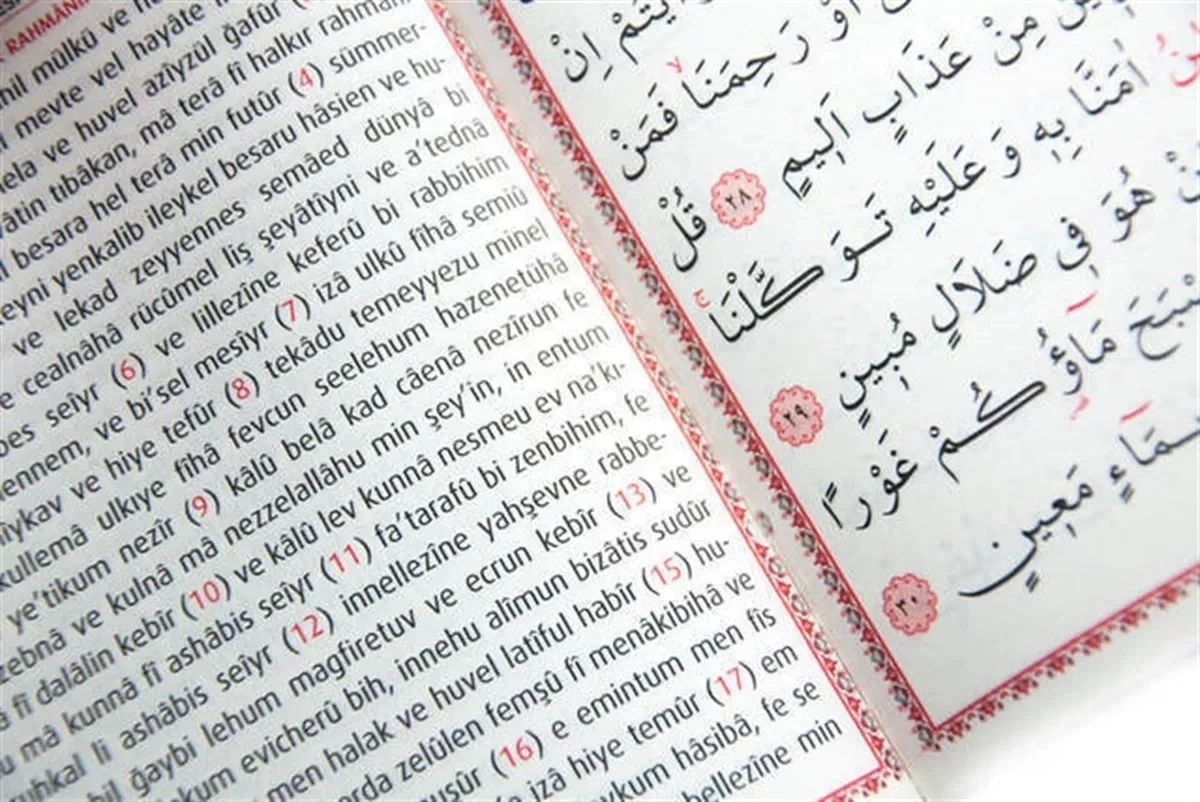 RAHMÂNİ
mülkü ve
mevte vel hayâte
ve huvel azîyzül ğafûr
tıbâkan, mâ terâ fî halkır rahmâni
besara hel terâ min futûr (4) sümmer-
yenkalib ileykel besaru hâsien ve hu-
ve lekad zeyyennes semâed dünyâ bi
cealnâhâ rücûmel liş şeyâtîyni ve a'tednâ
seîyr (6) ve lillezîne keferû bi rabbihim
ve bi'sel mesîyr (7) izâ ulkû fîhâ semiû
ve hiye tefûr (8) tekâdu temeyyezu minel
kullemâ ulkıye fîhâ fevcun seelehum hazenetühâ
ye'tikum nezîr (9) kâlû belâ kad câenâ nezîrun fe
ve kulnâ mâ nezzelallâhu min şey'in, in entum
fî dalâlin kebîr (10) ve kâlû lev kunnâ nesmeu ev na'kı-
mâ kunnâ fî ashâbis seîyr (11) fa'tarafû bi zenbihim, fe
li ashâbis seîyr (12) innellezîne yahşevne rabbe-
ğaybi lehum magfiretuv ve ecrun kebîr (13) ve
evicherû bih, innehu alîmun bizâtis sudûr
men halak ve huvel latîful habîr (15) hu-
zelûlen femşû fî menâkibihâ ve
(16) e emintum men fîs
izâ hiye temûr (17) em
hâsibâ, fe se
min
اِنْ
اَوْ رَحِمَنَا فَمَنْ
مِنْ عَذَابٍ اَلِيمٍ ٢٨ قُلْ
اٰمَنَّا بِهِ وَ عَلَيْهِ تَوَكَّلْنَا
هُوَ فِى ضَلَالٍ مُبِينٍ ٢٩
مَاؤُكُمْ غَوْرًا
مَعِينٍ ٣٠